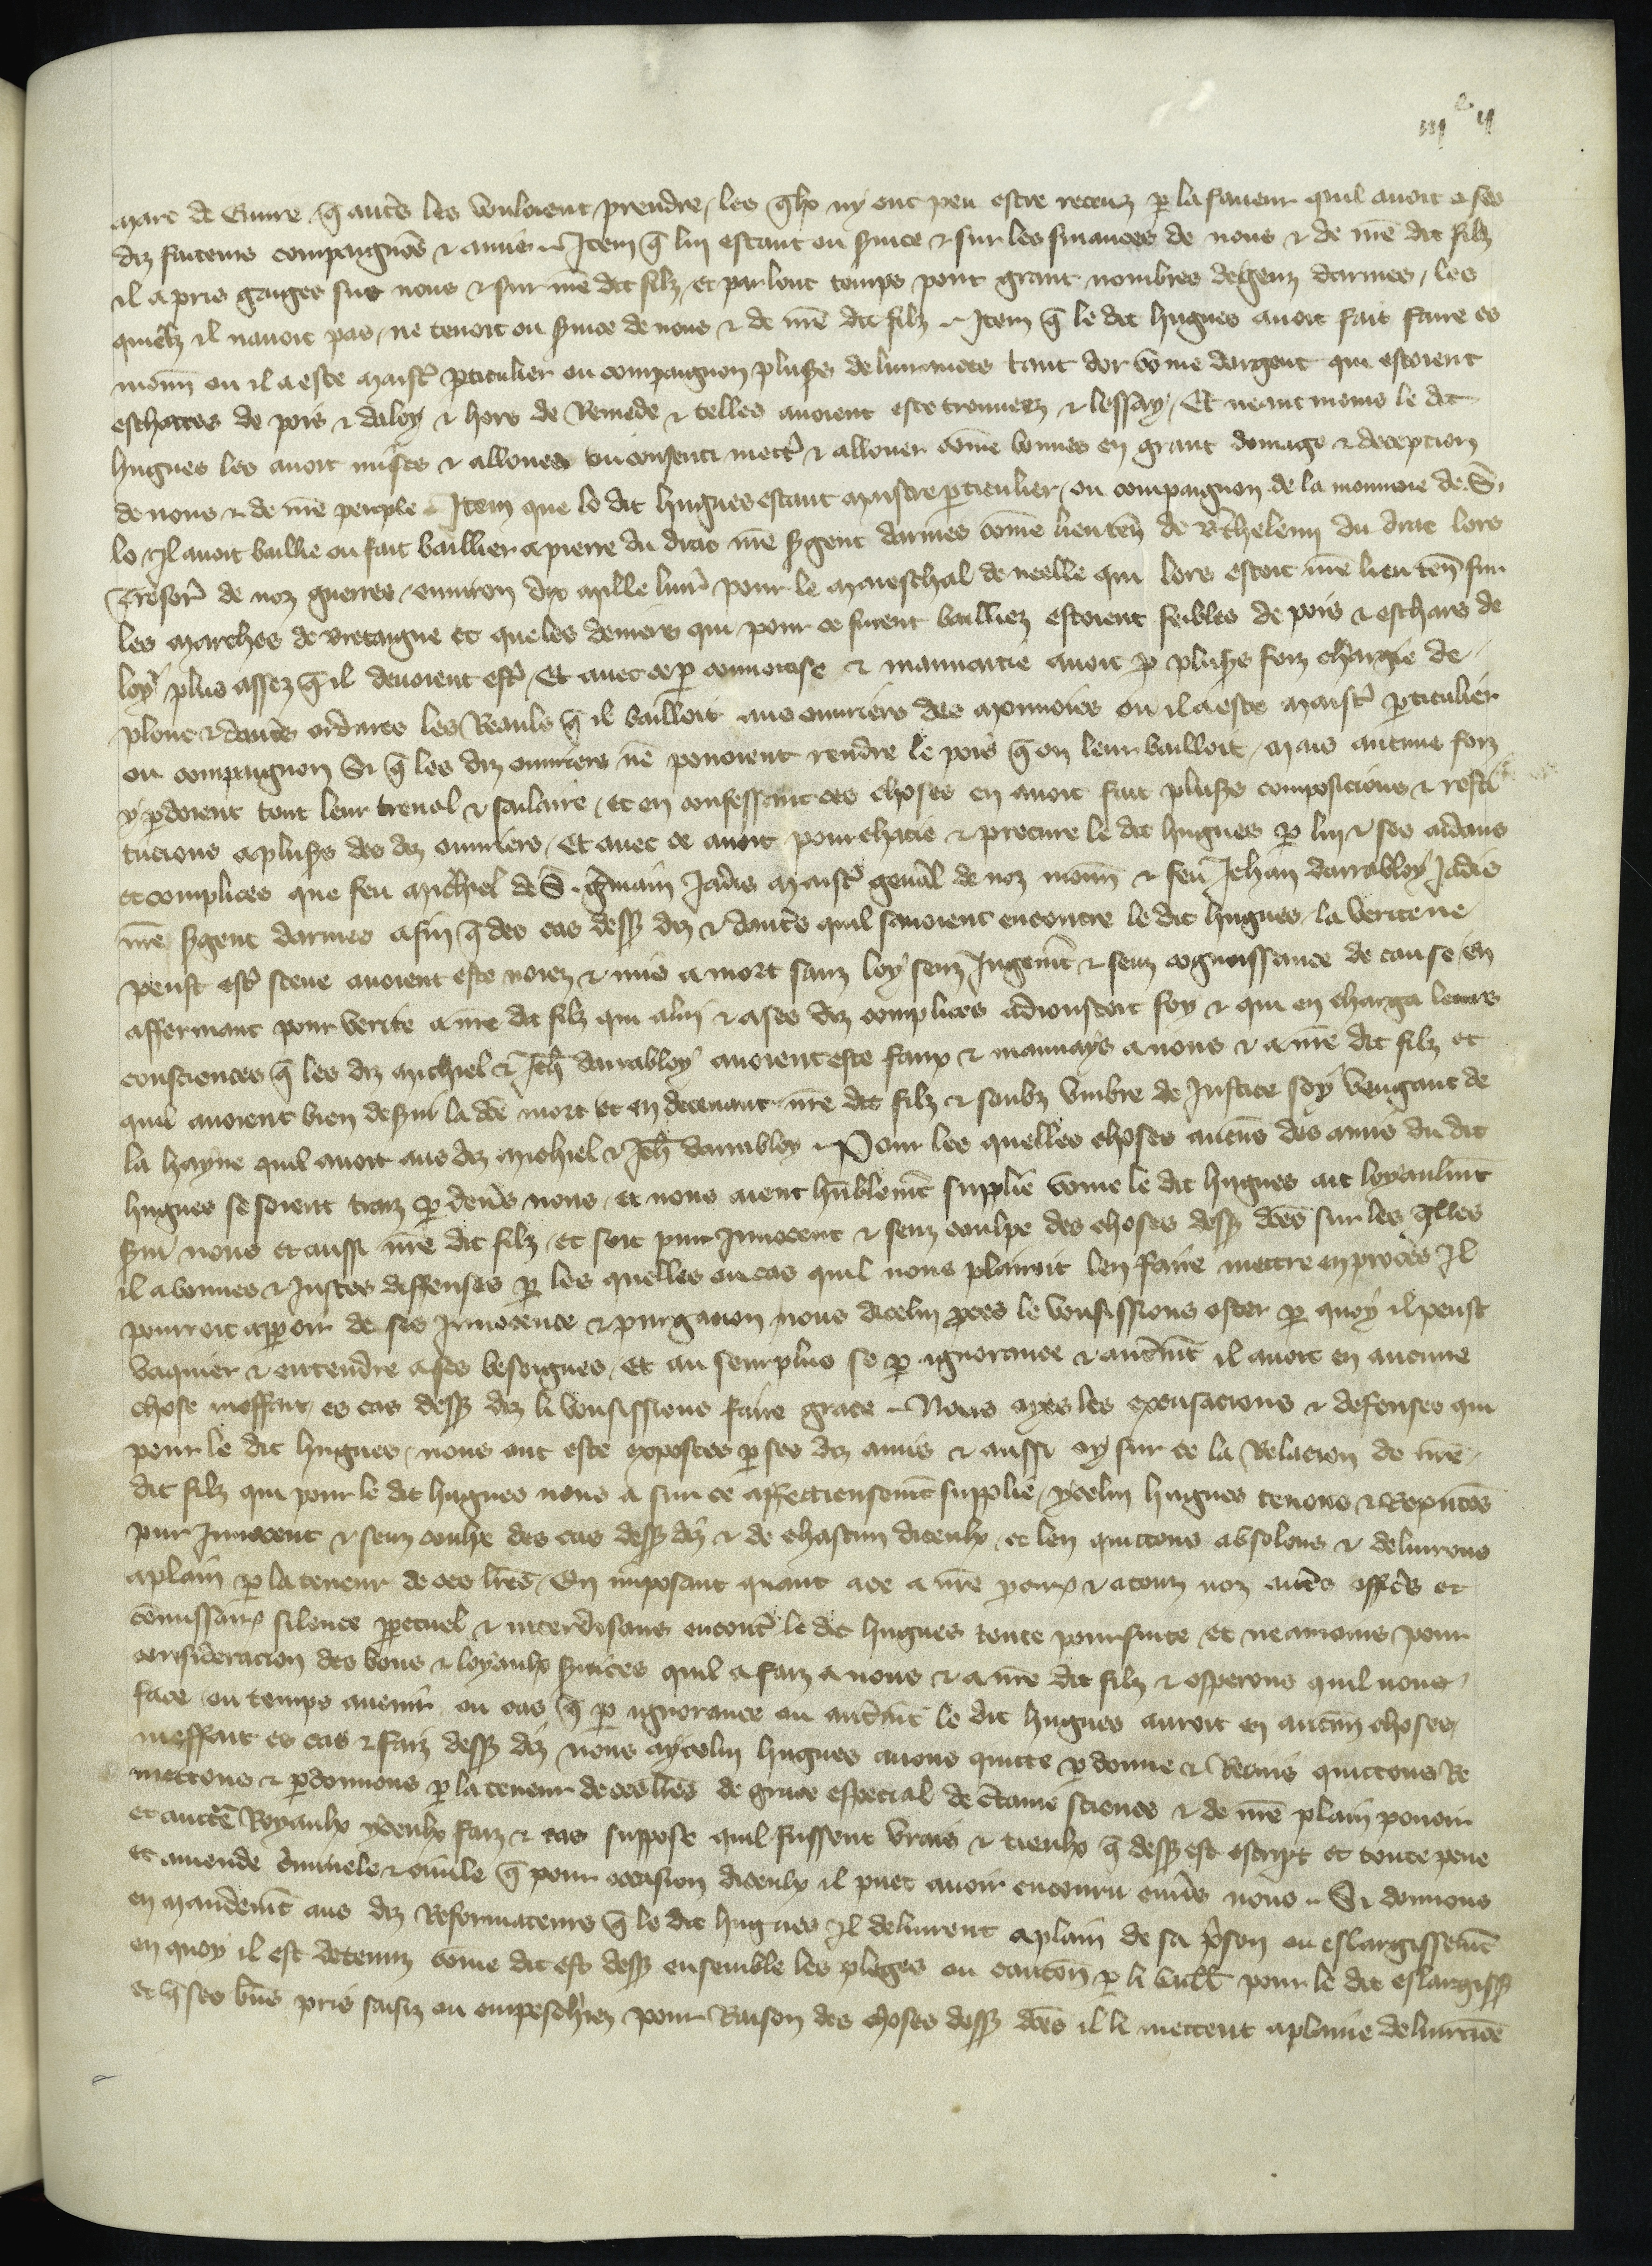 iijᶜ ij
marc de euure q̄ autˢ les vouloient prendre, les q̄lx ny ont peu estre receuz p la faueur quil auoit a ses
diz faiteurs compaignōs & amis. Item q̄ lui estant ou ẜuice & sur les finances de nous & de nr̄e dit filz
il a pris gaiges sur nous & sur nr̄e dit filz, et par lonc temps pour grant nombres de genz darmes, les
quielz il nauoit pas, ne tenoit ou ẜuice de nous & de nr̄e dit filz. Item q̄ le dit hugues auoit fait faire es
monn̄ ou il a este maist̄ pticulier ou compaignon plusẜs deliurances tant dor cōme dargent qui estoient
escharces de pois & daloy & hors de Remede & telles auoient este trouuees & lessay, Et neantmoins le dit
hugues les auoit mises & allouees ou consenti mectr̄ & allouer cōme bonnes en grant domage & deception
de nous & de nr̄e peuple. Item que le dit hugues estant maistre pticulier, ou compaignon de la monnoie de S.
lo Il auoit baillie ou fait baillier a pierre du drac nr̄e ẜgent darmes cōme lieuteñ de B̄thelemi du drac lors
Tresor̄ de noz guerres, enuiron dix mille liur̄ pour le mareschal de neelle qui lors estoit nr̄e lieu teñ sur
les marches de bretaigne et que les deniers qui pour ce furent bailliez estoient feibles de pois & eschars de
loy plus assez q̄ il deuoient estr̄, Et auec ce p conuoitise & mauuaitie auoit p plusẜs foiz chargie de
plonc & dautˢ ordures les Reaulx q̄ il bailloit aus ouuriers des monnoies ou il a este maist̄ pticulier
ou compaignon Si q̄ les diz ouuriers ne pouoient rendre le pois q̄ on leur bailloit, mais aucune foiz
y pdoient tout leur trauail & sailaire, et en confessant ces choses en auoit fait plusẜs composicions & resti
tucions a plusẜs des diz ouuriers, Et auec ce auoit pourchacie & procure le dit hugues p lui & ses aidans
et complices que feu michiel de S. ḡmain Jadis maist̄ gen̄al de noz monn̄ & feu Jehan darrabloy Jadis
nr̄e ẜgent darmes afin q̄ des cas dessꝰ diz & dautˢ quil sauoient encontre le dit hugues, la verite ne
peust estr̄ sceue auoient este noiez & mis a mort sanz loy senz Jugem̄t & senz cognoissance de cause en
affermant pour verite a nr̄e dit filz qui a lui & a ses diz complices adioustoit foy & qui en charga leurs
consciences q̄ les diz michiel & Jeh̄ darrabloy auoient este faux & mauuays a nous & a nr̄e dit filz et
quil auoient bien deẜui la dc̄e mort et en deceuant nr̄e dit filz & soubz vmbre de Justice soy vengant de
la hayne quil auoit aus diz michiel & Jeh̄ darrabloy. Pour les quelles choses aucūs des amis du dit
hugues se soient traiz p deuˢ nous, et nous aient hūblem̄t supplie cōme le dit hugues ait loyaulm̄t
ẜui nous et aussi nr̄e dit filz, et soit pur Innocent & senz coulpe des choses dessꝰ dc̄es sur les q̄lles
il a bonnes & Justes deffenses p les quelles ou cas quil nous plairoit len faire mettre en proces Il
pourroit apparoir de ses Innocence & purgacion nous dicelui pces le vousissions oster p quoy il peust
vaquier & entendre a ses besoignes, Et au seurplus se p ignorance & aut̄m̄t il auoit en aucune
chose meffait es cas dessꝰ diz li vousissions faire grace. Nous oyes les excusacions & defenses qui
pour le dit hugues, nous ont este exposees p ses diz amis & aussi oy sur ce la Relacion de nr̄e
dit filz qui pour le dit hugues nous a sur ce affectueusem̄t supplie, ycelui hugues tenons & Reputōs
pur Innocent & senz coulpe des cas dessꝰ diz & de chascun diceulx, et len quittons absolons & deliurons
a plain p la teneur de ces lr̄es, En imposant quant a ce a nr̄e pcur̄ & a touz noz autˢ offic̄s et
cōmissair̄ silence ppetuel & interdisans encont̄ le dit hugues toute poursuite et neantmoins pour
consideracion des bons & loyaulx ẜuices quil a faiz a nous & a nr̄e dit filz & esperons quil nous
face ou temps auenir ou cas q̄ p ignorance ou aut̄m̄t le dit hugues auroit en aucun̄ choses,
meffait es cas & faiz dessꝰ diz nous aycelui hugues auons quitte pdonne & Remis quittons Re
mettons & pdonnons p la teneur de ces lr̄es de grace especial de c̄taine science & de nr̄e plain pouoir
et auct̄e Royaulx yceulx faiz & cas suppose quil fussent vrais & tieulx q̄ dessꝰ est escript et toute peine
et amende c̄iminele & ciuile q̄ pour occasion diceulx il puet auoir encouru enuˢ nous. Si donnons
en mandem̄t aus diz Reformateurs q̄ le dit hugues Il deliurent a plain de sa p̄son ou eslargissem̄t
en quoy il est detenuz cōme dit est dessꝰ ensemble les pleges ou caucoñ p li baill̄ pour le dit eslargissꝰ
et q̄ ses bn̄s pris saisiz ou empeschiez pour Raison des choses dessꝰ dc̄es il li mettent a plaine deliurāce